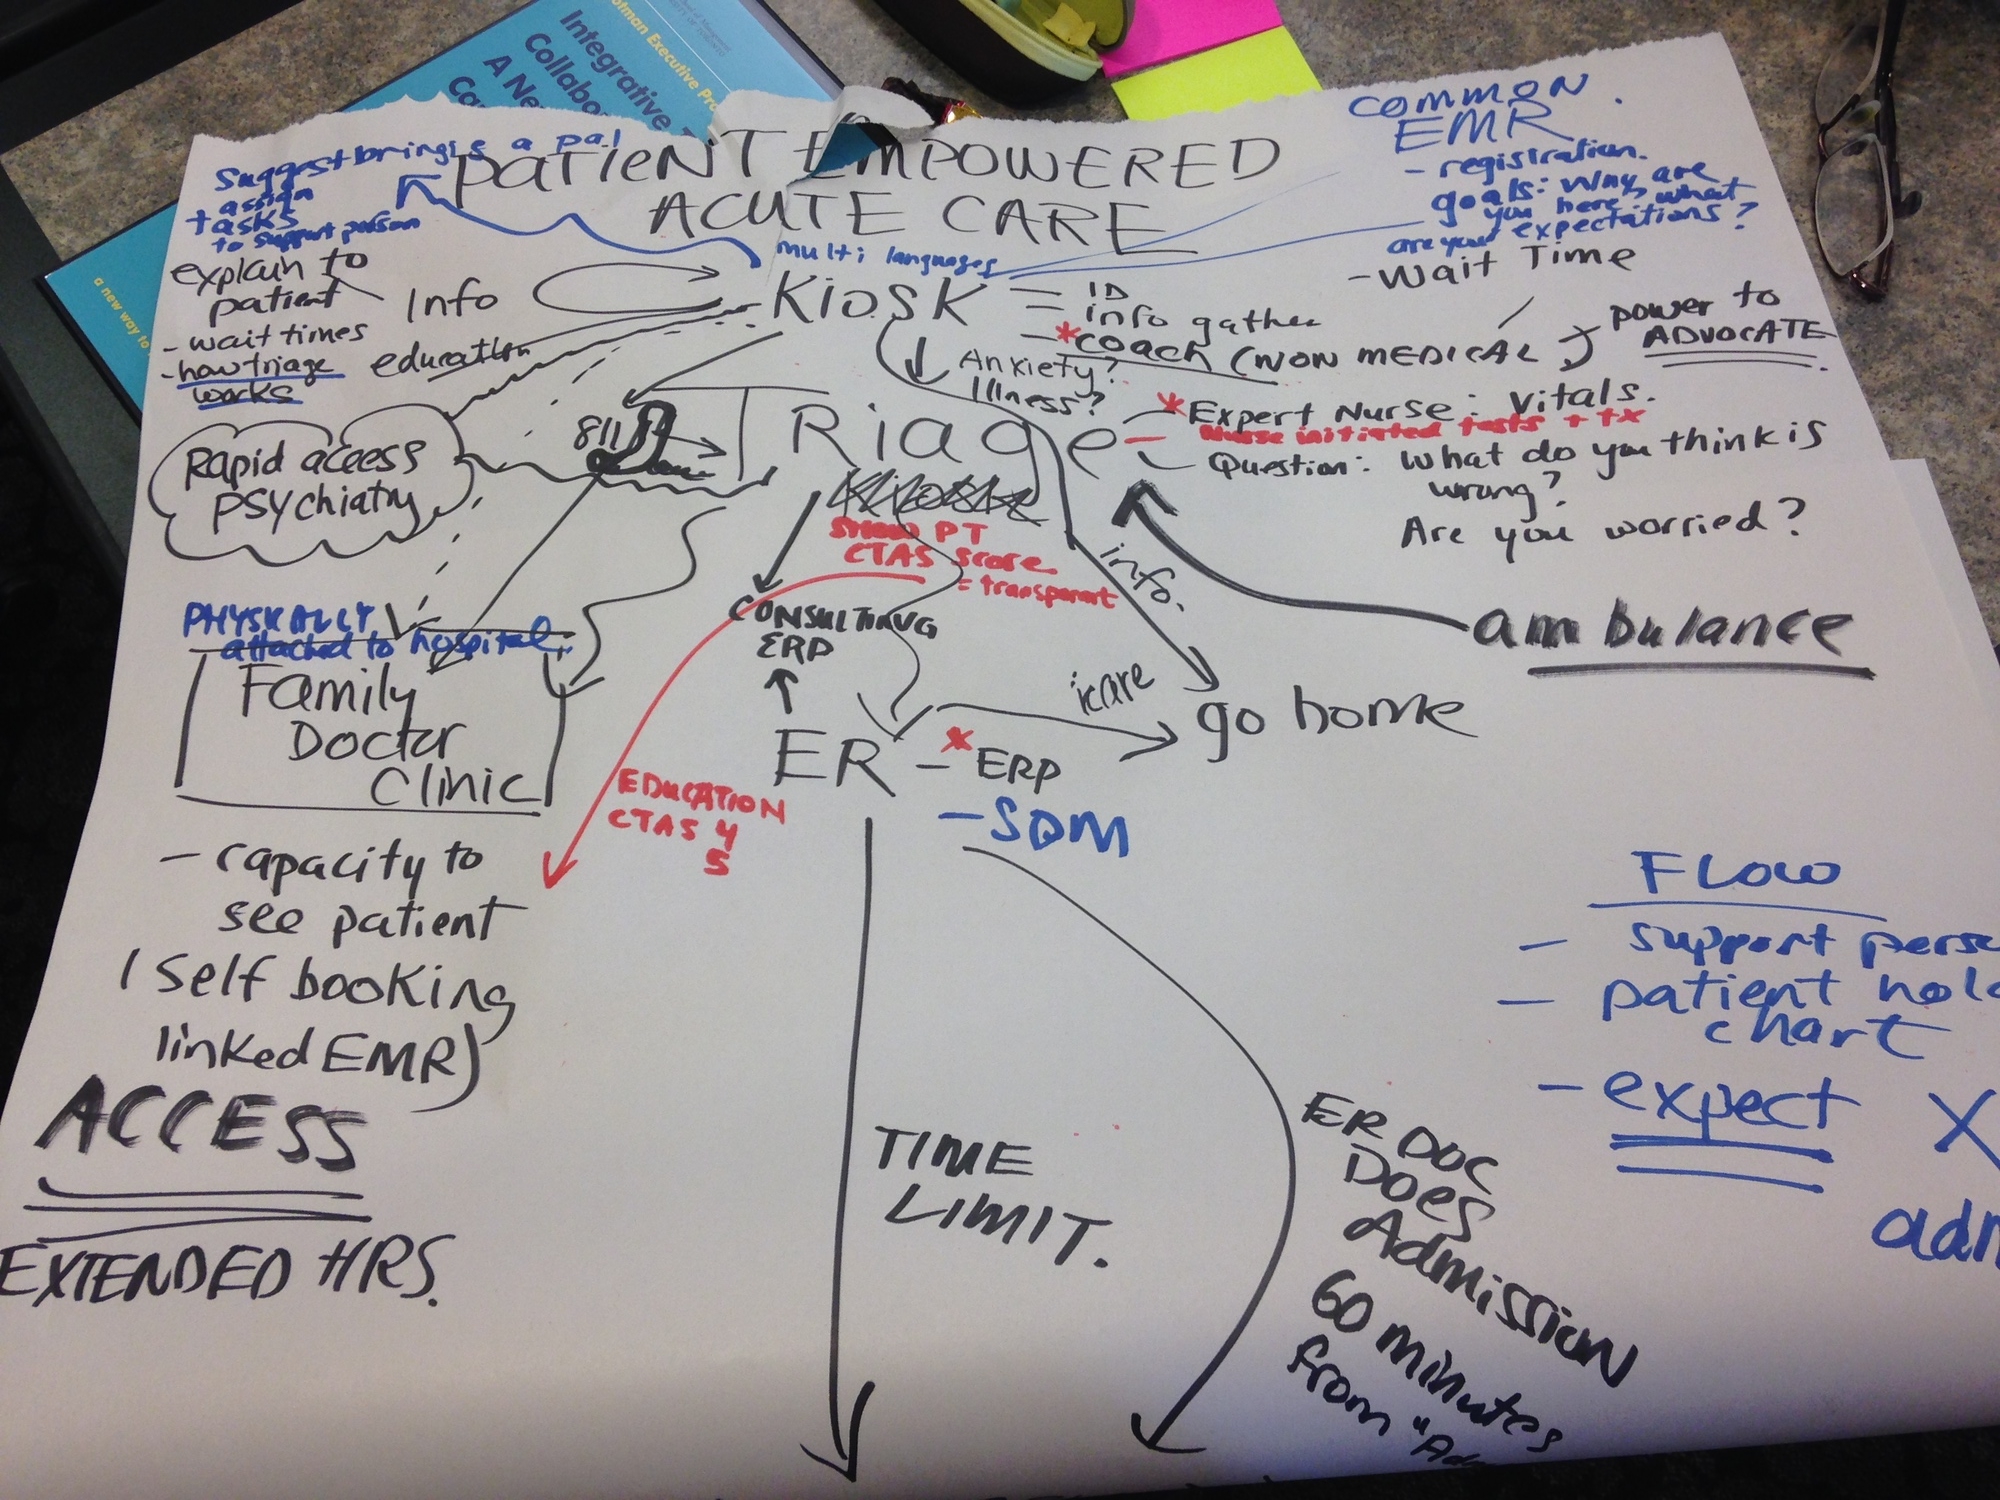 Integrative T
Collabo
A New
Ca
otman Executive Pro
a new way to
PATIENT EMPOWERED
ACUTE CARE
Suggest bringing a pal
+ assign
tasks
to support person
explain to
patient
- wait times
- how triage
works
Info
education
multi languages
Kiosk
ID
info gather
* coach (NON MEDICAL)
power to
ADVOCATE
COMMON
EMR
- registration.
goals: Why are
you here, what
are your expectations?
- Wait Time
Anxiety?
Illness?
Rapid access
PSYchiatry
811
TRiage
* Expert Nurse: Vitals.
Nurse initiated tests + tx
Question: What do you think is
wrong?
Are you worried?
Show PT
CTAS score
= transparent
info.
ambulance
CONSULTING
ERP
PHYSICALLY
attached to hospital
Family
Doctor
Clinic
ER
- * ERP
- SDM
icare
go home
EDUCATION
CTAS 4
5
- capacity to
see patient
(self booking
linked EMR)
ACCESS
EXTENDED HRS.
TIME
LIMIT.
ER DOC
DOES
Admission
60 minutes
from "Ad
FLOW
- support perso
- patient hold
chart
- expect X
adm